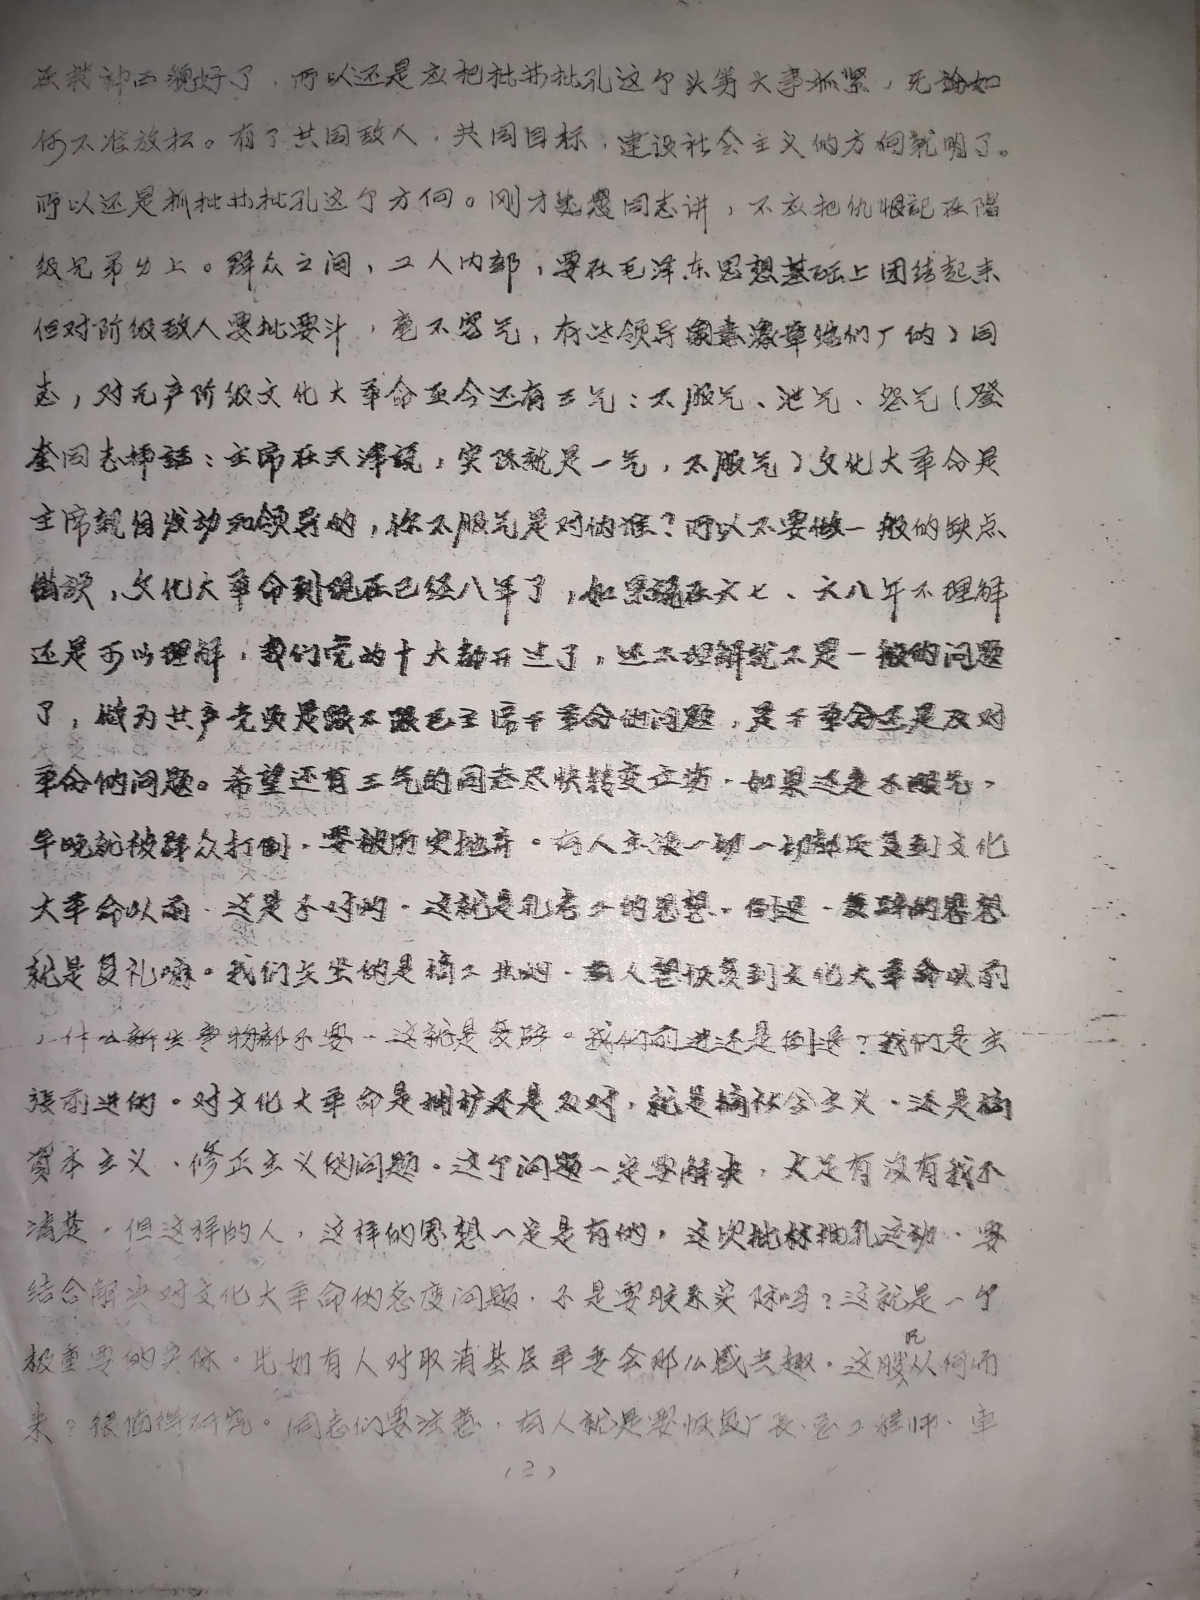 灰精神面貌好了，所以还是应把批林批孔这个头等大事抓紧，无论如
何不准放松。有了共同敌人，共同目标，建设社会主义的方向就明了。
所以还是抓批林批孔这个方向。刚才忠恩同志讲，不应把仇恨记在阶
级兄弟身上。群众之间，工人内部，要在毛泽东思想基础上团结起来
但对阶级敌人要批要斗，毫不客气，有些领导 同
志，对无产阶级文化大革命至今还有三气：不服气、泄气、怨气（登
奎同志插话：主席在天津说，实际就是一气，不服气）文化大革命是
主席亲自发动和领导的，你不服气是对的谁？所以不要做一般的缺点
错误，文化大革命到现在已经八年了，如果说在六七、六八年不理解
还是可以理解，我们党的十大都开过了，还不理解就不是一般的问题
了，做为共产党员是跟不跟毛主席干革命的问题，是干革命还是反对
革命的问题。希望还有三气的同志尽快转变立场，如果还是不服气，
早晚就被群众打倒，要被历史抛弃。有人主张一切一切都恢复到文化
大革命以前，这是不对的，这就是孔老二的思想，倒退，复辟的思想
就是复礼嘛。我们失望的是搞工业的，有人想恢复到文化大革命以前
，什么新生事物都不要，这就是复辟。我们前进还是倒退？我们是主
张前进的。对文化大革命是拥护还是反对，就是搞社会主义，还是搞
资本主义、修正主义的问题。这个问题一定要解决，大足有没有我不
清楚，但这样的人，这样的思想一定是有的，这次批林批孔运动，要
结合解决对文化大革命的态度问题，不是要联系实际吗？这就是一个
极重要的实际。比如有人对取消基层革委会那么感兴趣，这股风从何而
来？很值得研究。同志们要注意，有人就是要恢复厂长、总工程师、车
（2）